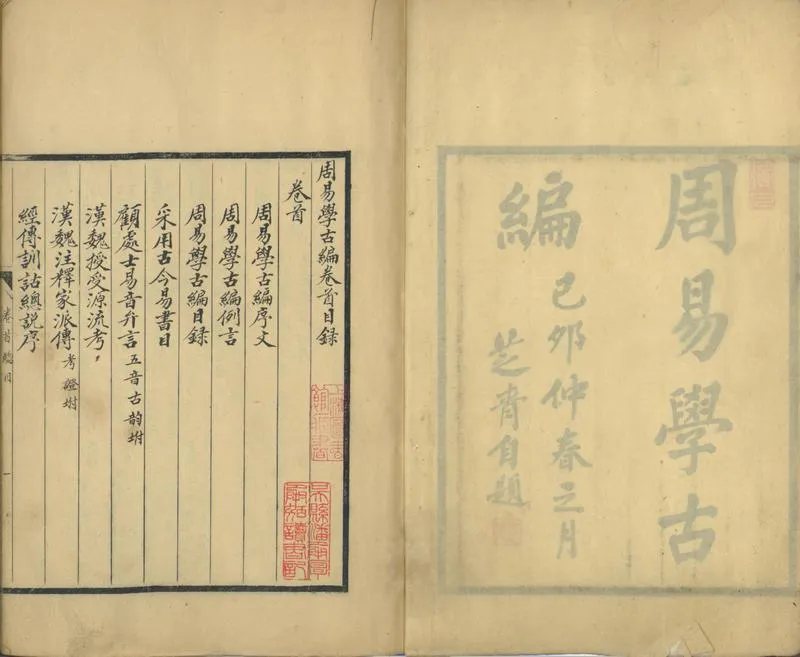 周易學古
編
己卯仲春之月
芝齋自題
周易學古編卷首目録
卷首
周易學古編序文
周易學古編例言
周易學古編目録
采用古今易書目
顧處士易音弁言五音古韵坿
漢魏授受源流考
漢魏注釋家派傳考證坿
經傳訓詁總説序
卷首總目
一